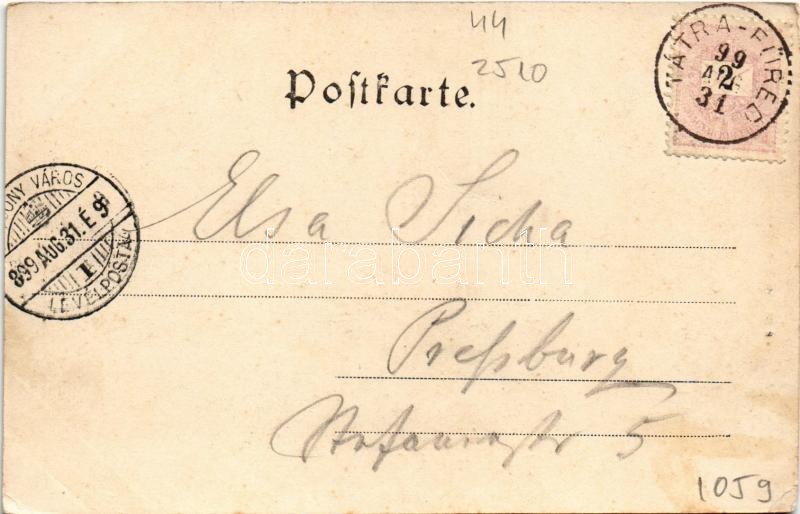 44
2510
Postkarte.
TÁTRA-FÜRED
99
AUG
2
31
POZSONY VÁROS
899 AUG. 31. É 9
1
LEVÉLPOSTA
Elsa Sicha
darabanth
Preßburg
Stefaniestr 5
1059